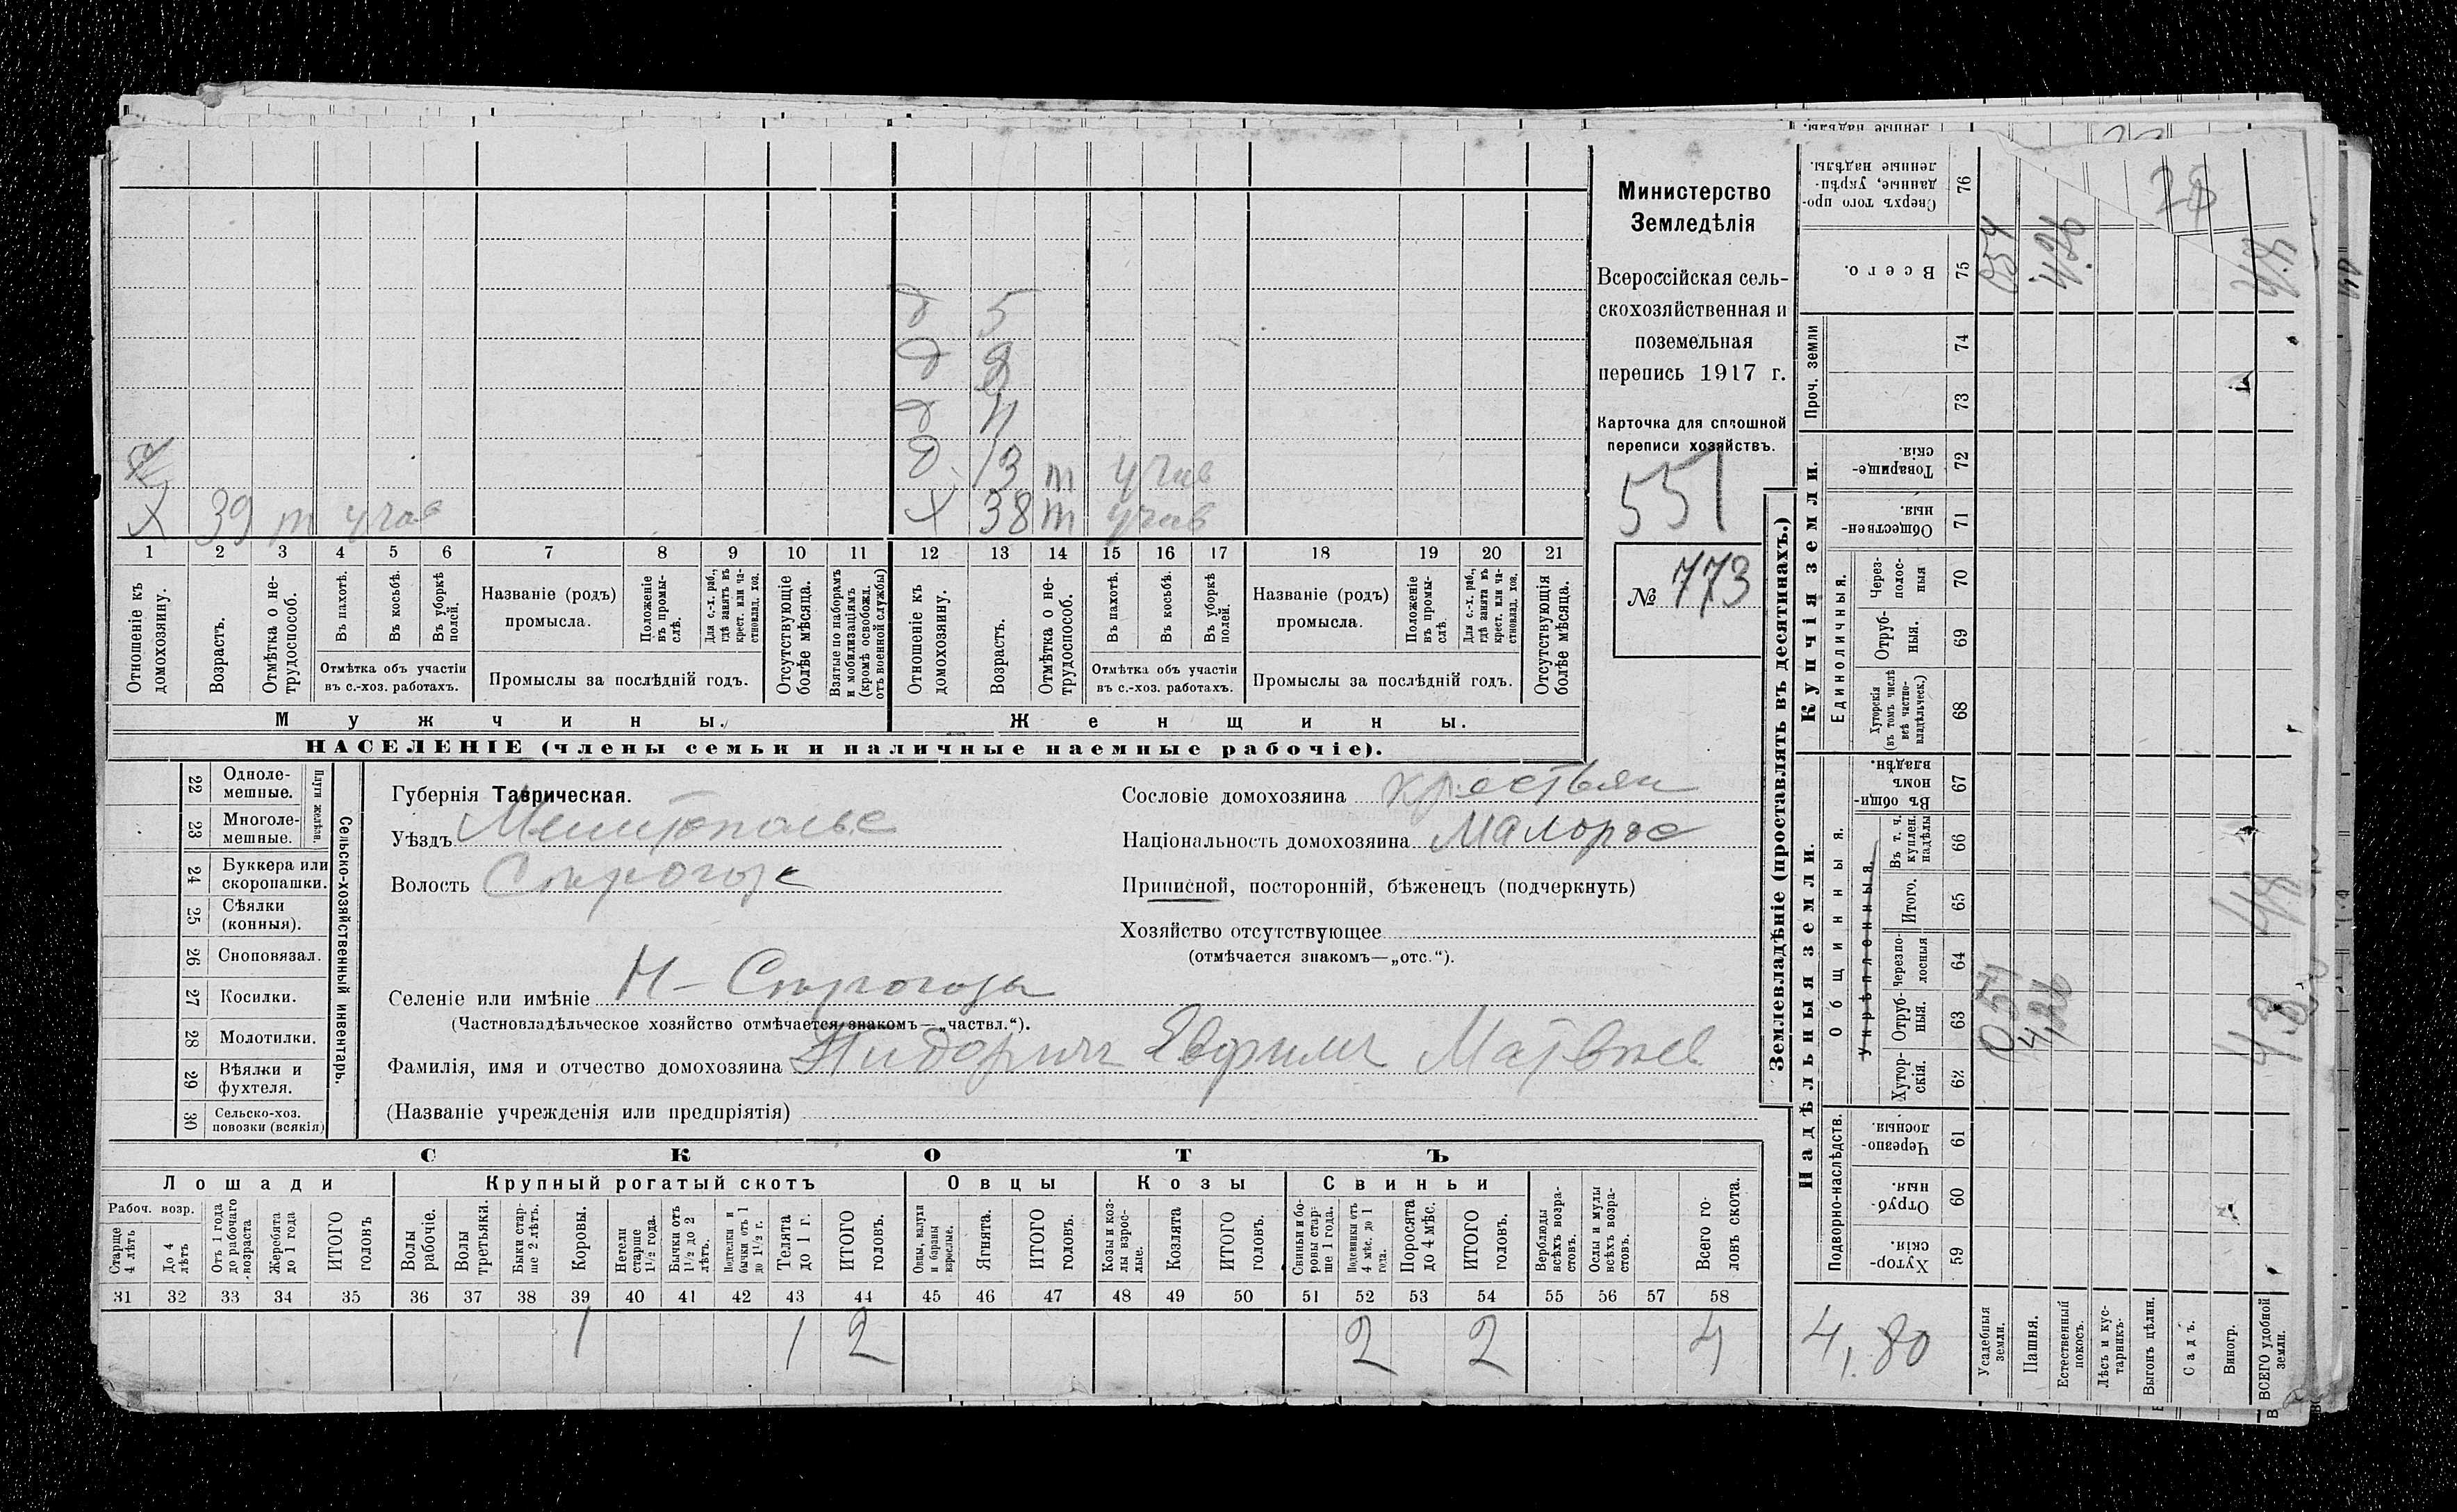 д 5
д 8
д 11
д 13 т учав
х 39 т учав х 38 т учав
1 2 3 4 5 6 7 8 9 10 11 12 13 14 15 16 17 18 19 20 21
Отношеніе къ домохозяину.
Возрастъ.
Отмѣтка о нетрудоспособ.
Въ пахотѣ.
Въ косьбѣ.
Въ уборкѣ полей.
Отмѣтка объ участіи
въ с.-хоз. работахъ.
Названіе (родъ)
промысла.
Положеніе въ промы-
слѣ.
Для с.-х. раб., гдѣ занятъ въ крест. или ча-
стновлад. хоз.
Промыслы за послѣдній годъ.
Отсутствующіе болѣе мѣсяца.
Взятые по наборамъ и мобилизаціямъ (кромѣ освобожд. отъ военной службы)
Отношеніе къ домохозяину.
Возрастъ.
Отмѣтка о не-
трудоспособ.
Въ пахотѣ.
Въ косьбѣ.
Въ уборкѣ полей.
Отмѣтка объ участіи
въ с.-хоз. работахъ.
Названіе (родъ)
промысла.
Положеніе въ промы-
слѣ.
Для с.-х. раб., гдѣ занята въ крест. или ча-
стновлад. хоз.
Промыслы за послѣдній годъ.
Отсутствующія болѣе мѣсяца.
Мужчины. Женщины.
НАСЕЛЕНІЕ (члены семьи и наличные наемные рабочіе).
Министерство
Земледѣлія
Всероссійская сель-
скохозяйственная и
поземельная
перепись 1917 г.
Карточка для сплошной
переписи хозяйствъ.
551
№ 773
22 Одноле-
мешные.
23 Многоле-
мешные.
Плуги желѣзн.
24 Буккера или
скоропашки.
25 Сѣялки
(конныя).
26 Сноповязал.
27 Косилки.
28 Молотилки.
29 Вѣялки и
фухтеля.
30 Сельско-хоз.
повозки (всякія)
Сельско-хозяйственный инвентарь.
Губернія Таврическая.
Уѣздъ Мелитопольс
Волость Сирогозс
Селеніе или имѣніе Н-Сирогозы
(Частновладѣльческое хозяйство отмѣчается знакомъ—„частвл.“).
Фамилія, имя и отчество домохозяина Евфим Матвѣев
(Названіе учрежденія или предпріятія)
Сословіе домохозяина крестьян
Національность домохозяина Малорос
Приписной, посторонній, бѣженецъ (подчеркнуть)
Хозяйство отсутствующее
(отмѣчается знакомъ—„отс.“).
СКОТЪ
Лошади Крупный рогатый скотъ Овцы Козы Свиньи
Рабоч. возр.
Старше 4 лѣтъ
До 4 лѣтъ
Отъ 1 года до рабочаго возраста
Жеребята до 1 года
ИТОГО головъ
Волы рабочіе.
Волы третьяки.
Быки стар-
ше 2 лѣтъ.
Коровы.
Нетели старше 1½ года.
Бычки отъ 1½ до 2 лѣтъ.
Подтелки и бычки отъ 1 до 1½ г.
Телята до 1 г.
ИТОГО головъ.
Овцы, валухи и бараны взрослые.
Ягнята.
ИТОГО головъ.
Козы и коз-
лы взрос-
лые.
Козлята
ИТОГО головъ.
Свиньи и бо-
ровы стар-
ше 1 года.
Подсвинки отъ 4 мѣс. до 1 года.
Поросята до 4 мѣс.
ИТОГО головъ.
Верблюды всѣхъ возра-
стовъ.
Ослы и мулы всѣхъ возра-
стовъ.
Всего го-
ловъ скота.
31 32 33 34 35 36 37 38 39 40 41 42 43 44 45 46 47 48 49 50 51 52 53 54 55 56 57 58
1 1 2 2 2 4
Землевладѣніе (проставлять въ десятинахъ.)
Надѣльныя земли. Купчія земли. Проч. земли
Подворно-наслѣдств.
Общинныя.
Укрѣпленныя.
Единоличныя.
59 Хутор-
скія.
60 Отруб-
ныя.
61 Черезпо-
лосныя.
62 Хутор-
скія.
63 Отруб-
ныя.
64 Черезпо-
лосныя
65 Итого.
66 Въ т. ч. куплен. надѣлы
67 Въ общи-
номъ владѣн.
68 Хуторскія (въ томъ числѣ всѣ частно-
владѣльческ.)
69 Отруб-
ныя.
70 Через-
полос-
ныя
71 Обществен-
ныя.
72 Товарище-
скія.
73
74
75 Всего.
76 Сверхъ того про-
данные, укрѣп-
ленные надѣлы.
4,80
Усадебныя земли.
Пашня.
Естественный покосъ.
Лѣсъ и кус-
тарникъ.
Выгонъ цѣлин.
Садъ.
Виногр.
ВСЕГО удобной земли.
0,54
4,26
4,8
054
4.26
4.8